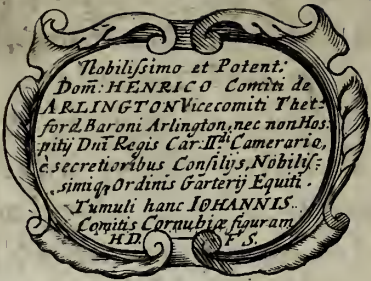 Nobilissimo et Potent:
Dom̄: HENRICO Comiti de
ARLINGTON Vicecomiti Thet-
ford, Baroni Arlington, nec non Hos-
pitij Dn̄i Regis Car: II.di Camerario,
è secretioribus Consilijs, Nobilis-
simiq3 Ordinis Garterij Equiti.
Tumuli hanc IOHANNIS
Comitis Cornubiæ figuram
H.D. F S.